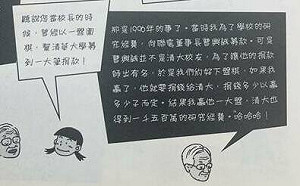 聽說您當校長的時
候，曾經以一盤圍
棋，幫清華大學募
到一大筆捐款！
那是1990年的事了。當時我為了學校的研
究經費，向聯電董事長曹興誠募款。可是
曹興誠並不是清大校友，為了讓他的捐款
師出有名，於是我們約好下盤棋，如果我
贏了，他就要捐錢給清大，捐錢多少以贏
多少子而定。結果我贏他一大盤，清大也
得到一千五百萬的研究經費。哈哈哈！